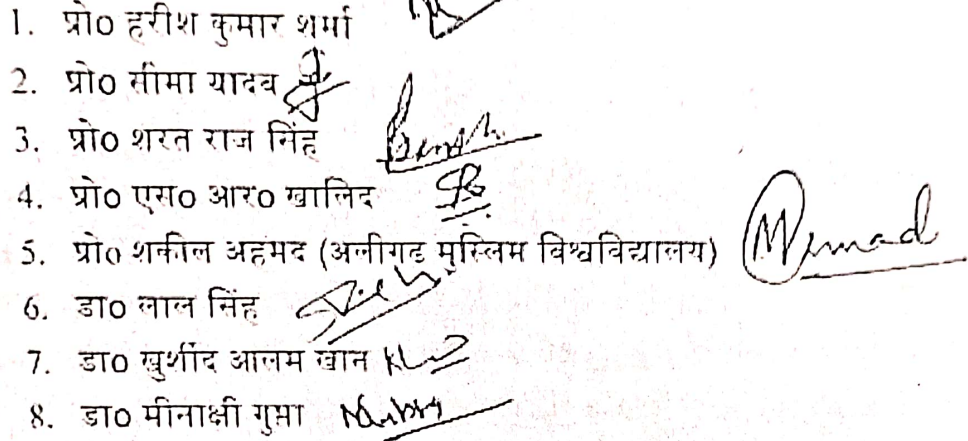 1. प्रो0 हरीश कुमार शर्मा
2. प्रो0 सीमा यादव
3. प्रो0 शरत राज सिंह
4. प्रो0 एस0 आर0 खालिद
5. प्रो0 शकील अहमद (अलीगढ मुस्लिम विश्वविद्यालय)
6. डा0 लाल सिंह
7. डा0 खुर्शीद आलम खान
8. डा0 मीनाक्षी गुप्ता